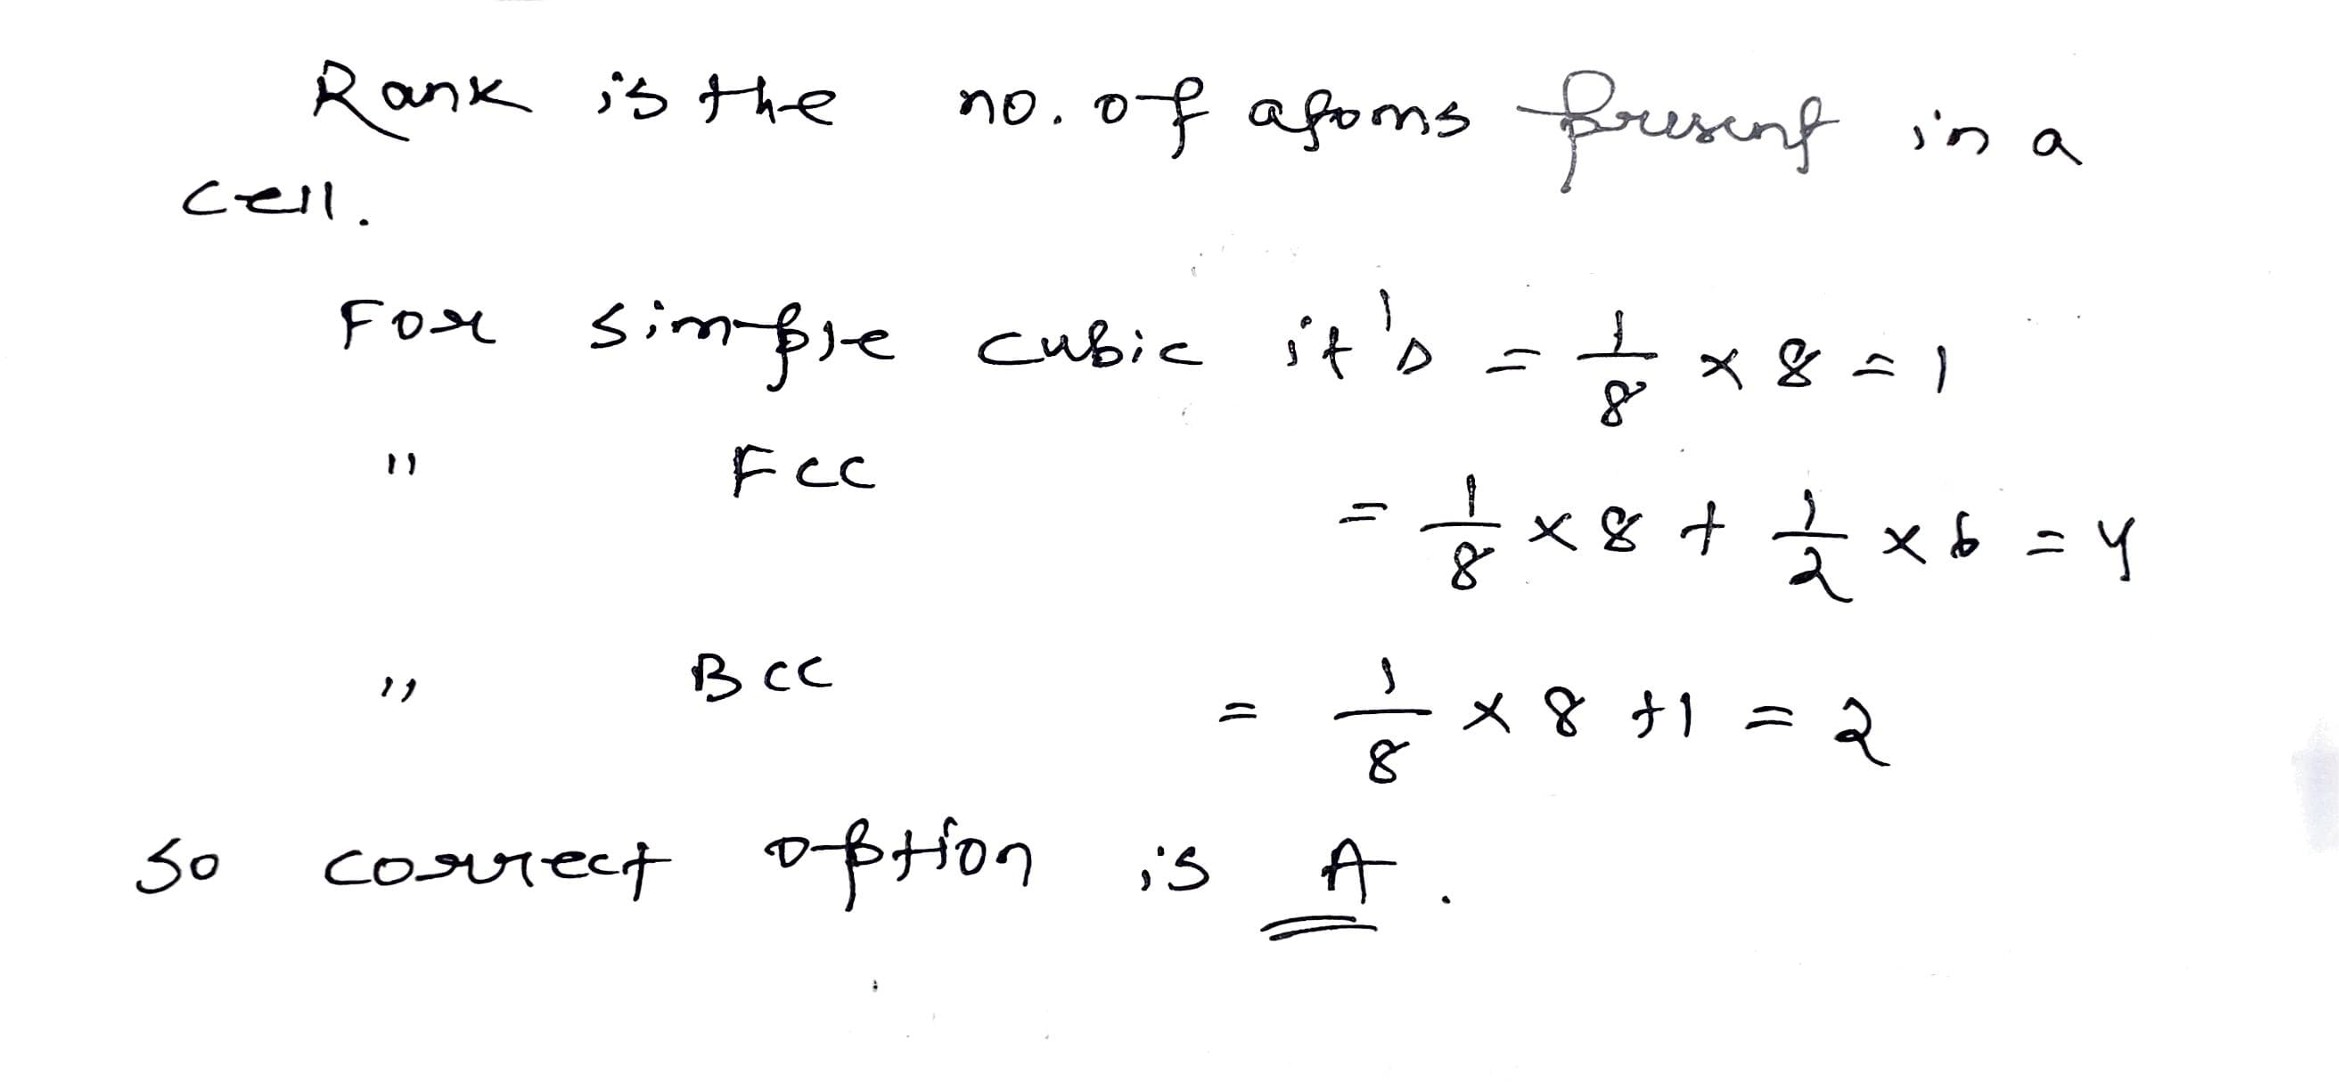 Rank is the no. of atoms present in a
cell.
For simple cubic it's = 1/8 × 8 = 1
" FCC = 1/8 × 8 + 1/2 × 6 = 4
" BCC = 1/8 × 8 +1 = 2
so correct option is A.